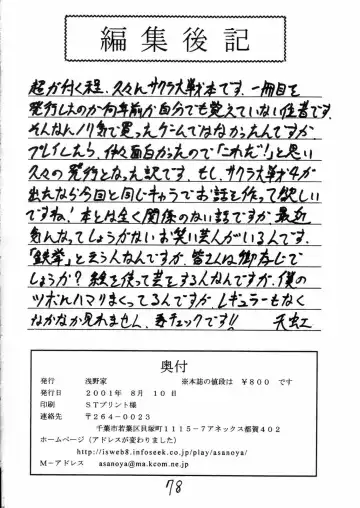 編集後記
超が付く程、久々んサクラ大戦本です。一冊目を
発行したのが何年前か自分でも覚えていない位昔です。
そんなんノリ気で買ったゲームではなかったんですが、
プレイしたら、仲々面白かったので「これだ!」と思い
久々の発行となった訳です。もし、サクラ大戦4が
出たなら今回と同じキャラでお話を作って欲しい
ですね!本とは全く関係のない話ですが最近
気んなってしょうがないお笑い芸人がいるんです。
「鉄拳」と云う人なんですが、皆さんは御存じで
しょうか?絵を使って芸をする人なんですが、僕の
ツボんハマリまくってるんですが、レギュラーもなく
なかなか見れません。要チェックです!! 天虹
奥付
発行 浅野家 ※本誌の値段は ¥800 です
発行日 2001年 8月 10日
印刷 STプリント様
連絡先 〒264-0023
千葉市若葉区貝塚町1115-7アネックス都賀402
ホームページ(アドレスが変わりました)
http://isweb8.infoseek.co.jp/play/asanoya/
M-アドレス asanoya@ma.kcom.ne.jp
78